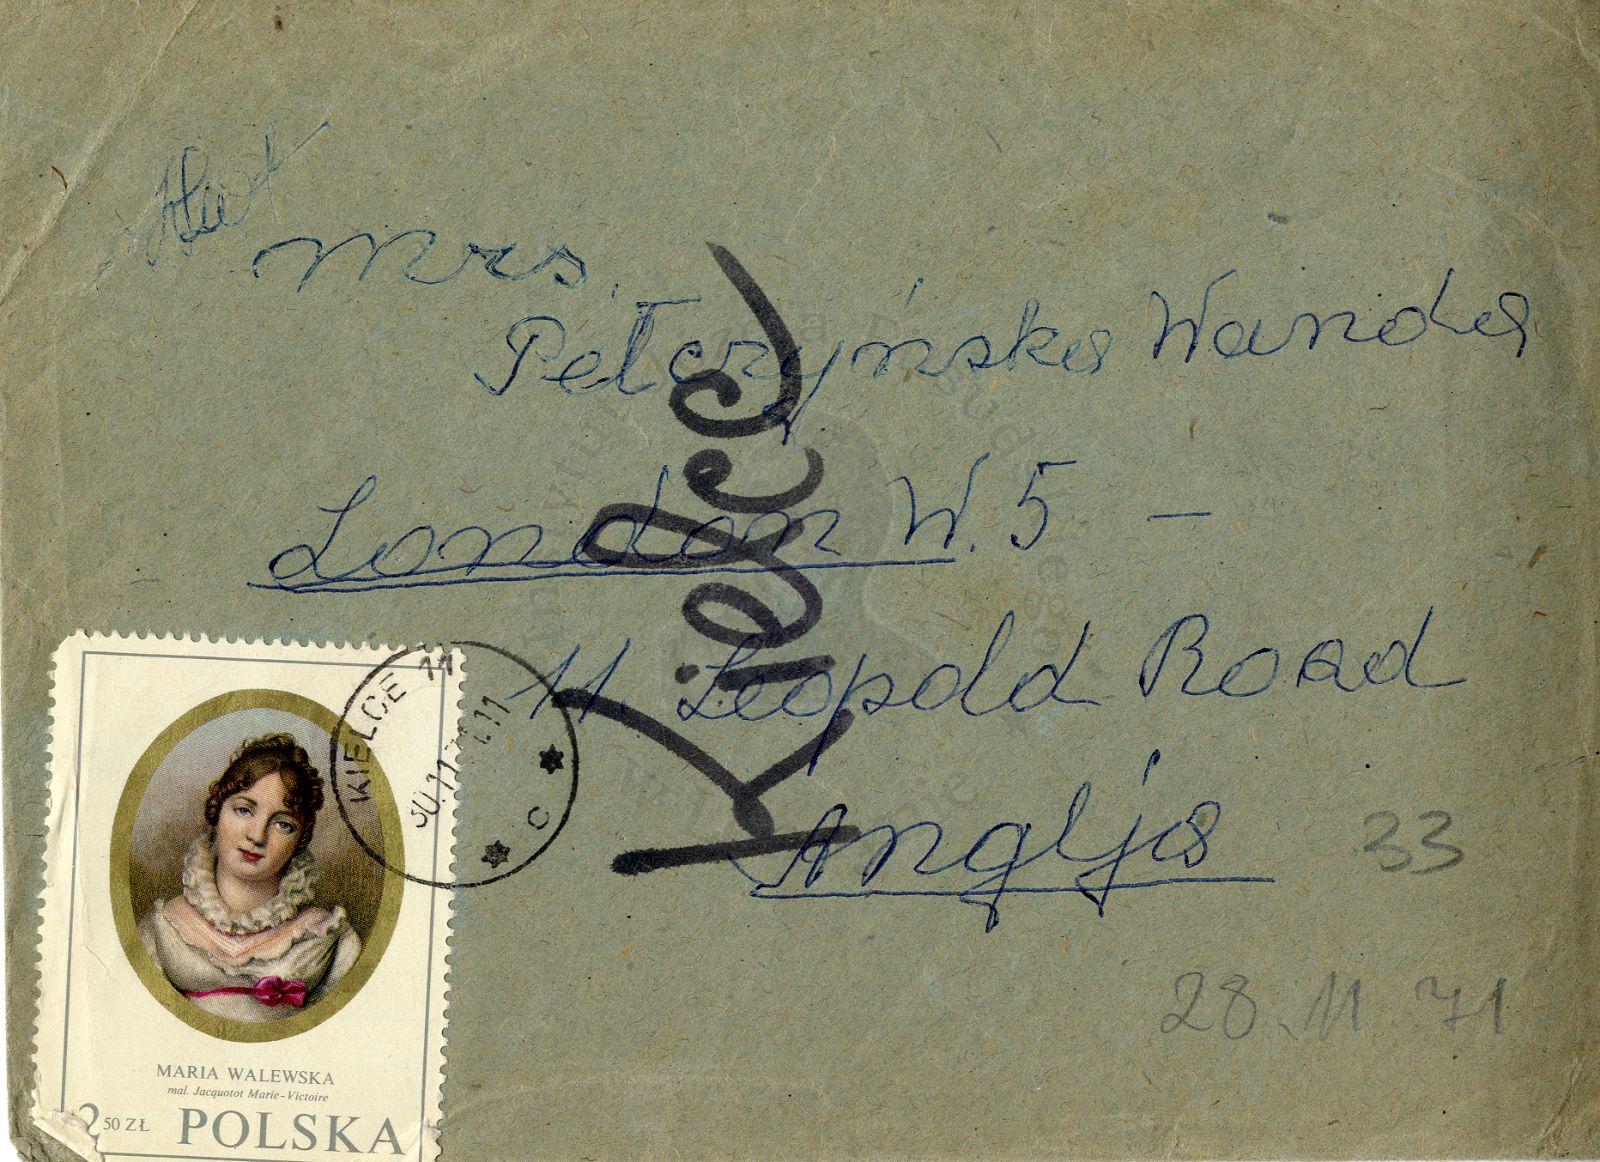 Mrs.
Pełczyńska Wanda
London W. 5 –
11. Leopold Road
Anglja
Kielce
33
28. 11 71
KIELCE 11
C
MARIA WALEWSKA
mal. Jacquotot Marie-Victoire
2 50 ZŁ POLSKA